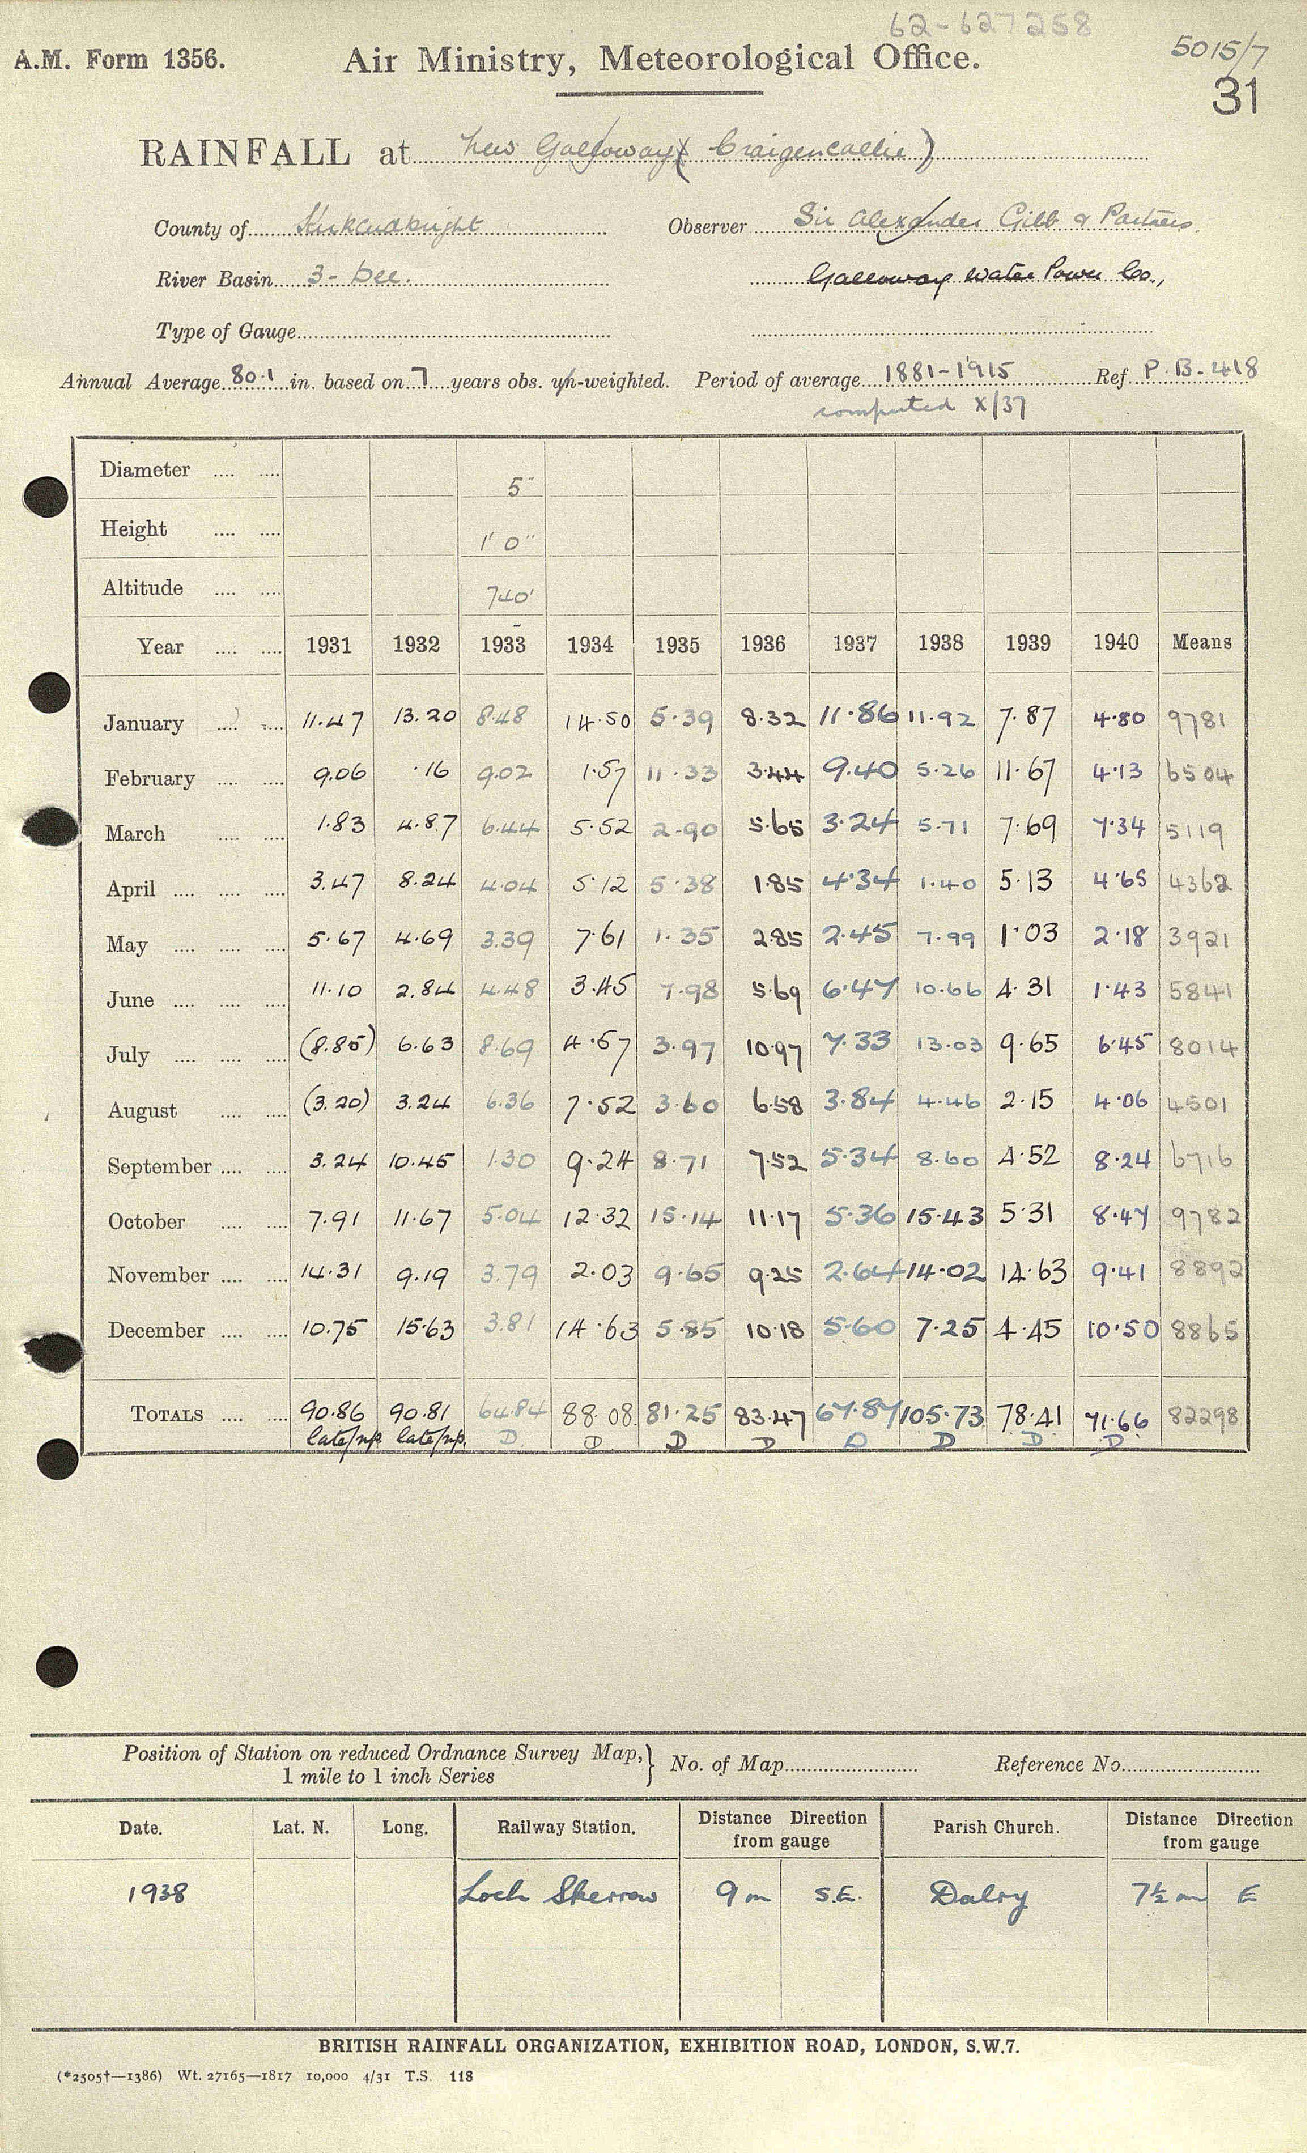 62-627258
A.M. Form 1356. Air Ministry, Meteorological Office. 5015/7
31
RAINFALL at New Galloway (Craigencallie)
County of Kirkcudbright Observer Sir Alexander Gibb & Partners.
River Basin 3 - Dee. Galloway Water Power Co.,
Type of Gauge
Annual Average 80.1 in. based on 7 years obs. un-weighted. Period of average 1881-1915 Ref P.B. 418
computed X/37
Diameter 5"
Height 1' 0"
Altitude 740'
Year 1931 1932 1933 1934 1935 1936 1937 1938 1939 1940 Means
January 11.47 13.20 8.48 14.50 5.39 8.32 11.86 11.92 7.87 4.80 9781
February 9.06 .16 9.02 1.57 11.33 3.44 9.40 5.26 11.67 4.13 6504
March 1.83 4.87 6.44 5.52 2.90 5.65 3.24 5.71 7.69 7.34 5119
April 3.47 8.24 4.04 5.12 5.38 1.85 4.34 1.40 5.13 4.65 4362
May 5.67 4.69 3.39 7.61 1.35 2.85 2.45 7.99 1.03 2.18 3921
June 11.10 2.84 4.48 3.45 7.98 5.69 6.47 10.66 4.31 1.43 5841
July (8.85) 6.63 8.69 4.57 3.97 10.97 7.33 13.03 9.65 6.45 8014
August (3.20) 3.24 6.36 7.52 3.60 6.58 3.84 4.46 2.15 4.06 4501
September 3.24 10.45 1.30 9.24 8.71 7.52 5.34 8.60 4.52 8.24 6716
October 7.91 11.67 5.04 12.32 15.14 11.17 5.36 15.43 5.31 8.47 9782
November 14.31 9.19 3.79 2.03 9.65 9.25 2.64 14.02 14.63 9.41 8892
December 10.75 15.63 3.81 14.63 5.85 10.18 5.60 7.25 4.45 10.50 8865
TOTALS 90.86 90.81 64.84 88.08 81.25 83.47 67.87 105.73 78.41 71.66 82298
late/np late/np. D D D D D D D D
Position of Station on reduced Ordnance Survey Map, } No. of Map Reference No.
1 mile to 1 inch Series
Date. Lat. N. Long. Railway Station. Distance from gauge Direction Parish Church. Distance from gauge Direction
1938 Loch Skerrow 9 m S.E. Dalry 7½ m E
BRITISH RAINFALL ORGANIZATION, EXHIBITION ROAD, LONDON, S.W.7.
(*2505†—1386) Wt. 27165—1817 10,000 4/31 T.S. 118